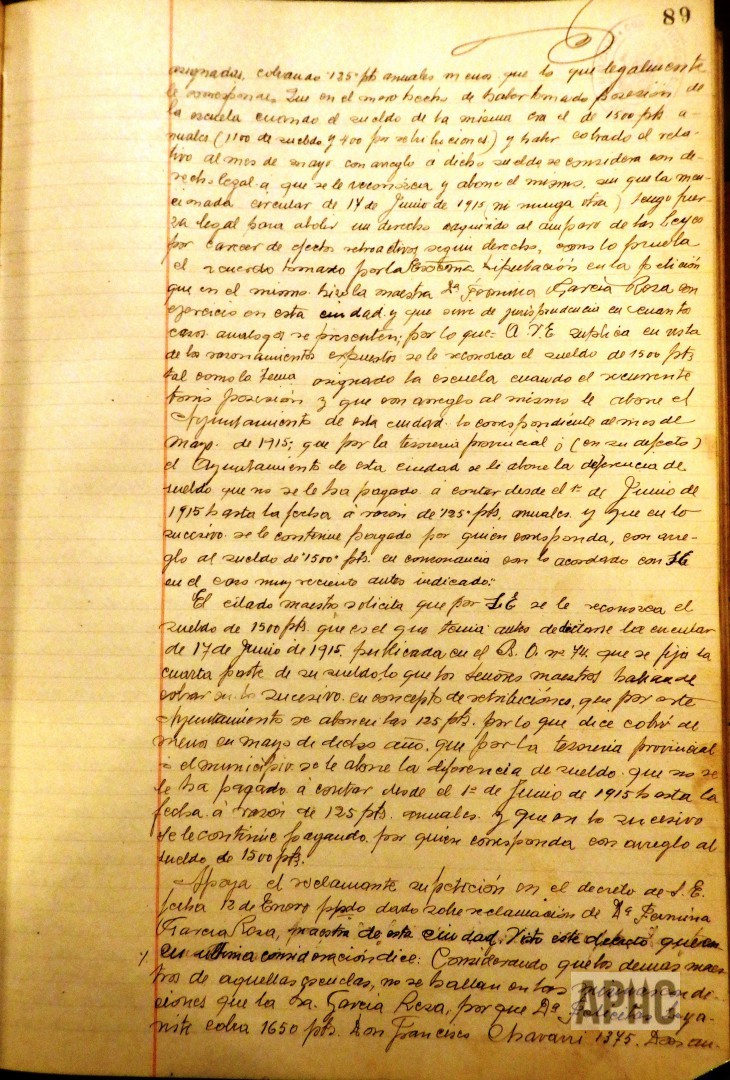 89
asignadas, cobrando 125 pts anuales menos que lo que legalmente
le corresponde. Que en el mero hecho de haber tomado posesión de
la escuela cuando el sueldo de la misma era el de 1500 pts a-
nuales (1100 de sueldo y 400 por retribuciones) y haber cobrado el rela-
tivo al mes de mayo con arreglo a dicho sueldo se considera con de-
recho legal a que se le reconozca y abone el mismo, sin que la men-
cionada circular de 17 de Junio de 1915, ni ninguna otra) tenga fuer-
za legal para abolir un derecho adquirido al amparo de las leyes
por carecer de efectos retroactivos segun derecho, como lo prueba
el acuerdo tomado por la Excma Diputación en la petición
que en el mismo hizo la maestra Dª Fermina García Rosa con
ejercicio en esta ciudad y que sirve de jurisprudencia en cuantos
casos analogos se presenten; por lo que= A. V.E suplica en vista
de los razonamientos expuestos se le reconozca el sueldo de 1500 pts
tal como lo tema asignado la escuela cuando el recurrente
tomó posesión y que con arreglo al mismo le abone el
Ayuntamiento de esta ciudad lo correspondiente al mes de
Mayo de 1915; que por la tesoreria provincial ó (en su defecto)
el Ayuntamiento de esta ciudad se le abone la diferencia de
sueldo que no se le ha pagado á contar desde el 1º de Junio de
1915 hasta la fecha á razón de 125 pts, anuales y que en lo
sucesivo se le continue pagado por quien corresponda, con arre-
glo al sueldo de 1500 pts. en consonancia con lo acordado con SE
en el caso muy reciente antes indicado;"
El citado maestro solicita que por S.E se le reconozca el
sueldo de 1500 pts que es el que tenia antes de dictarse la circular
de 17 de Junio de 1915, publicada en el B. O. nº 74, que se fija la
cuarta parte de su sueldo lo que los señores maestros habian de
cobrar en lo sucesivo en concepto de retribuciones, que por este
Ayuntamiento se abonen las 125 pts. por lo que dice cobró de
menos en mayo de dicho año, que por la tesoreria provincial
ó el municipio se le abone la diferencia de sueldo que no se
le ha pagado á contar desde el 1º de Junio de 1915 hasta la
fecha á razón de 125 pts. anuales y que en lo sucesivo
se le continue pagando por quien corresponda con arreglo al
sueldo de 1500 pts.
Apoya el reclamante su petición en el decreto de S. E.
fecha 12 de Enero ppdo dado sobre reclamación de Dª Fermina
García Rosa, maestra de esta ciudad. Visto este decreto que en
su ultima consideración dice: Considerando que los demas maes-
tros de aquellas escuelas, no se hallan en las mismas condi-
ciones que la Sra. García Rosa, porque Dª
niste cobra 1650 pts. Don Francisco Chavarri 1375. Don
APHC